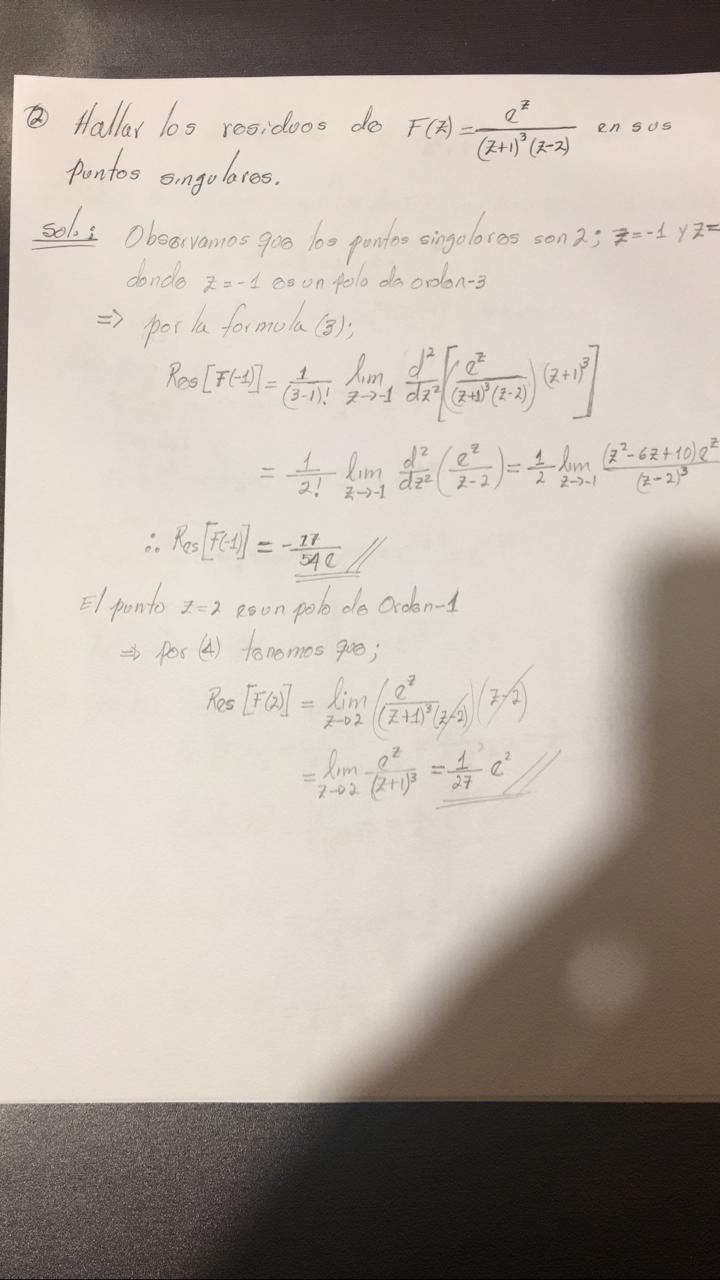 ② Hallar los residuos de F(z) = e^z / ((z+1)^3 (z-2)) en sus
puntos singulares.
Sol.: Observamos que los puntos singulares son 2; z=-1 y z=
donde z=-1 es un polo de orden-3
=> por la formula (3);
Res[F(-1)] = 1/(3-1)! lim z→-1 d^2/dz^2 [(e^z / ((z+1)^3 (z-2))) (z+1)^3]
= 1/2! lim z→-1 d^2/dz^2 (e^z / (z-2)) = 1/2 lim z→-1 (z^2-6z+10)e^z / (z-2)^3
∴ Res[F(-1)] = - 17/54e //
El punto z=2 es un polo de Orden-1
=> por (4) tenemos que;
Res [F(2)] = lim z→2 (e^z / ((z+1)^3 (z-2))) (z-2)
= lim z→2 e^z / (z+1)^3 = 1/27 e^2 //